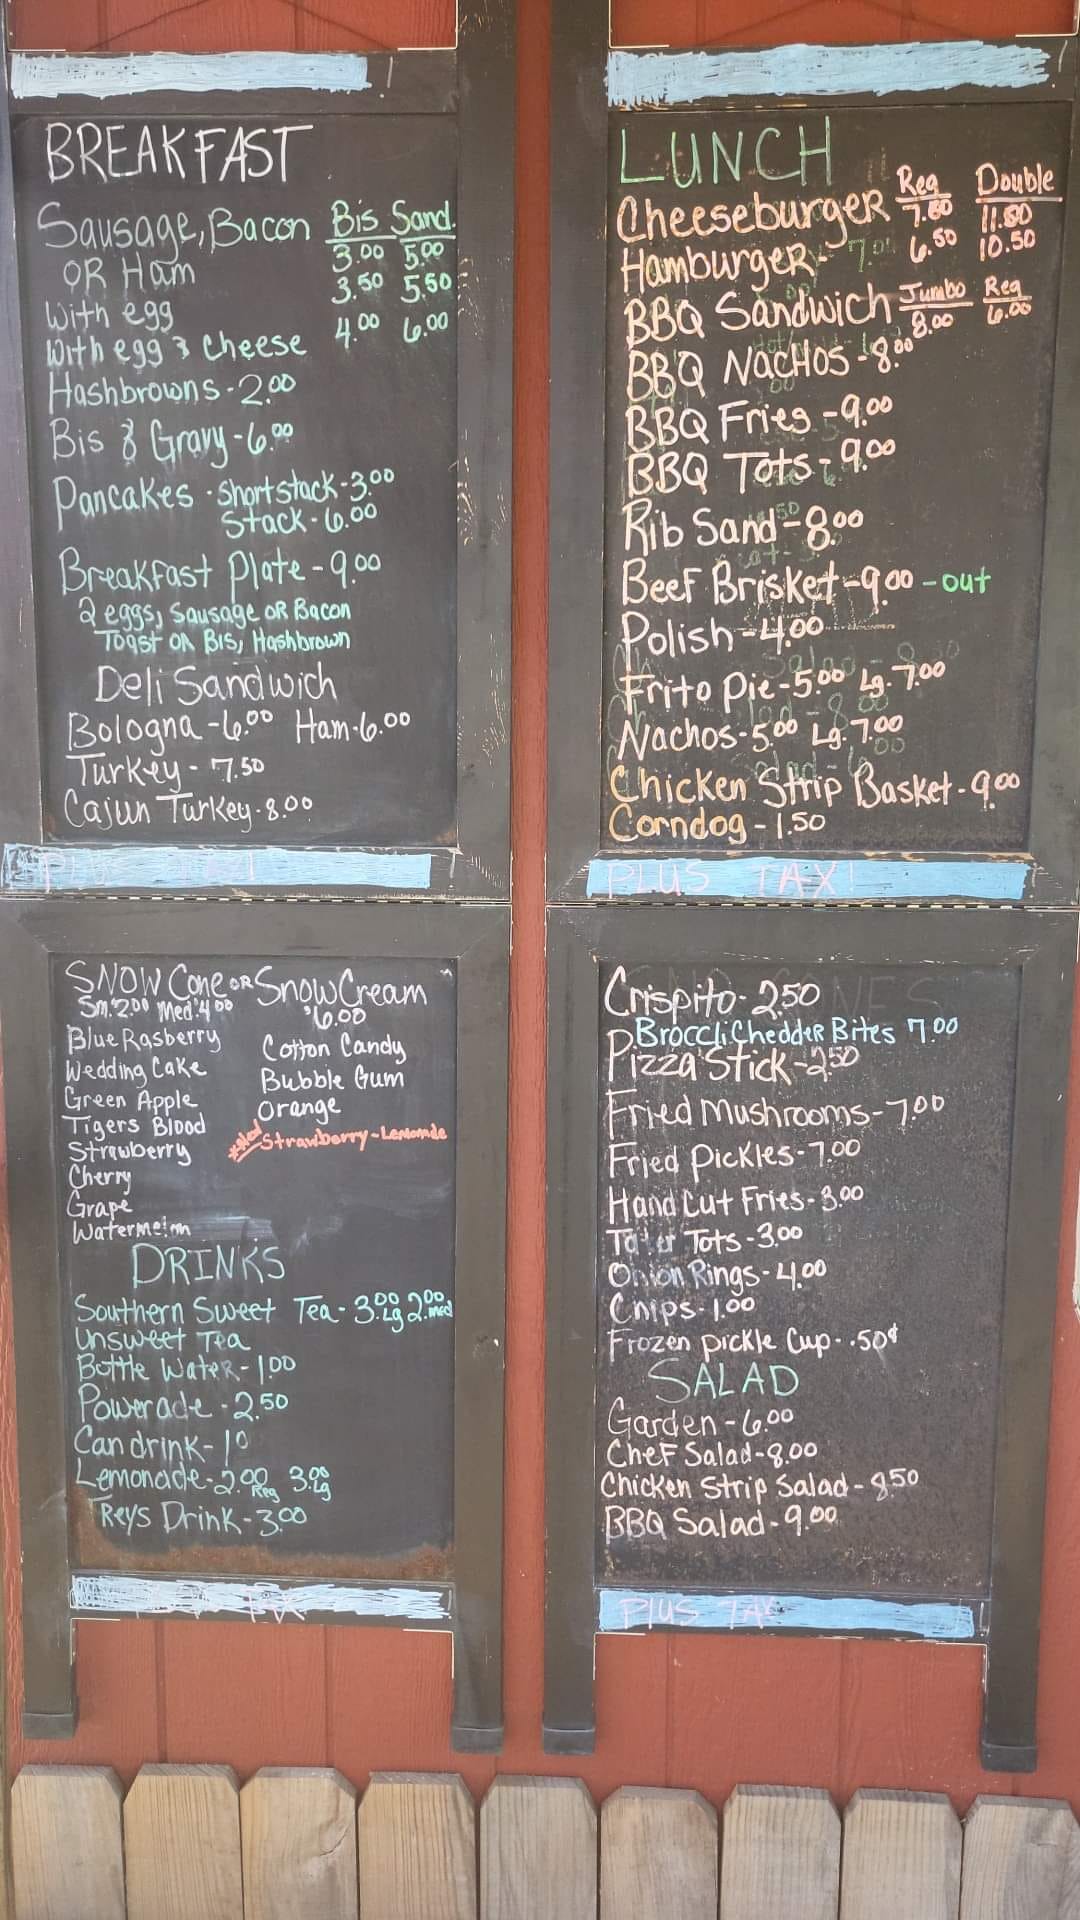 BREAKFAST
Sausage, Bacon Bis Sand.
OR Ham 3.00 5.00
With egg 3.50 5.50
With egg & Cheese 4.00 6.00
Hashbrowns - 2.00
Bis & Gravy - 6.00
Pancakes - Shortstack - 3.00
Stack - 6.00
Breakfast Plate - 9.00
2 eggs, Sausage OR Bacon
Toast OR Bis, Hashbrown
Deli Sandwich
Bologna - 6.00 Ham - 6.00
Turkey - 7.50
Cajun Turkey - 8.00
SNOW Cone OR Snow Cream
Sm. 2.00 Med. 4.00 $6.00
Blue Rasberry
Wedding Cake
Green Apple
Tigers Blood
Strawberry
Cherry
Grape
Watermelon
Cotton Candy
Bubble Gum
Orange
Strawberry - Lemonade
DRINKS
Southern Sweet Tea - 3.00 Lg 2.00 med
Unsweet Tea
Bottle Water - 1.00
Powerade - 2.50
Can drink - 1.0
Lemonade - 2.00 Reg 3.00 Lg
Treys Drink - 3.00
TAX
LUNCH
Reg Double
Cheeseburger 7.50 11.50
Hamburger - 6.50 10.50
BBQ Sandwich Jumbo 8.00 Reg 6.00
BBQ Nachos - 8.00
BBQ Fries - 9.00
BBQ Tots - 9.00
Rib Sand - 8.00
Beef Brisket - 9.00 - out
Polish - 4.00
Frito Pie - 5.00 Lg. 7.00
Nachos - 5.00 Lg. 7.00
Chicken Strip Basket - 9.00
Corndog - 1.50
PLUS TAX!
Crispito - 2.50
Broccli Chedder Bites 7.00
Pizza Stick - 2.50
Fried Mushrooms - 7.00
Fried Pickles - 7.00
Hand Cut Fries - 3.00
Tater Tots - 3.00
Onion Rings - 4.00
Chips - 1.00
Frozen pickle Cup - .50¢
SALAD
Garden - 6.00
Chef Salad - 8.00
Chicken Strip Salad - 8.50
BBQ Salad - 9.00
PLUS TAX